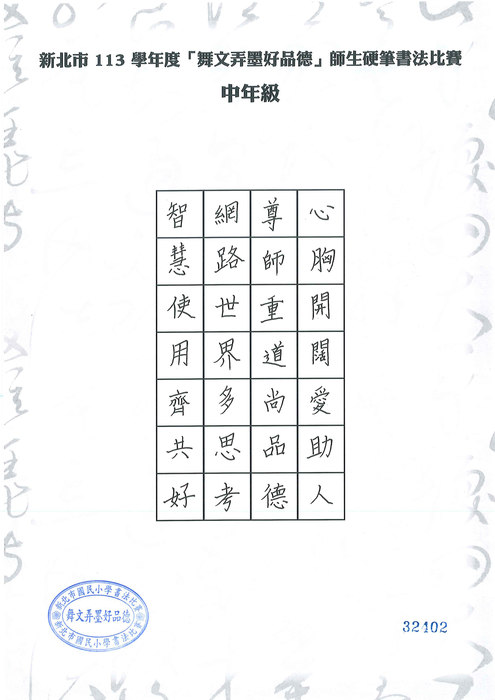 新北市 113 學年度「舞文弄墨好品德」師生硬筆書法比賽
中年級
心胸開闊愛助人
尊師重道尚品德
網路世界多思考
智慧使用齊共好
新北市國民小學書法比賽
舞文弄墨好品德
新北市國民小學書法比賽
32402